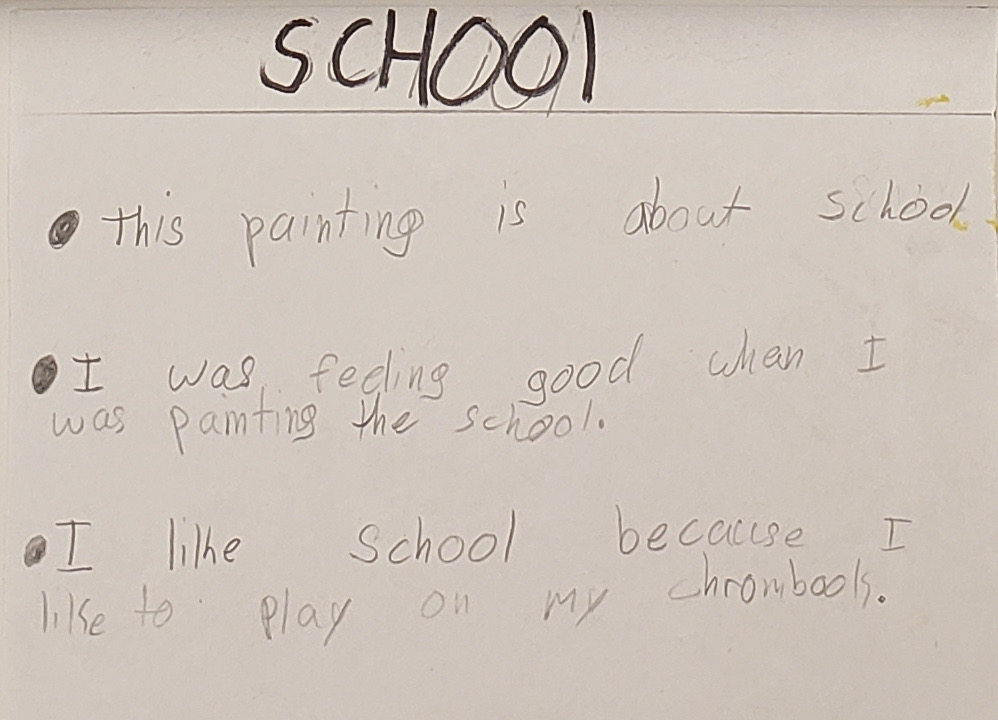 SCHOOl
• this painting is about school
• I was feeling good when I
was painting the school.
• I like School because I
like to play on my chrombook.